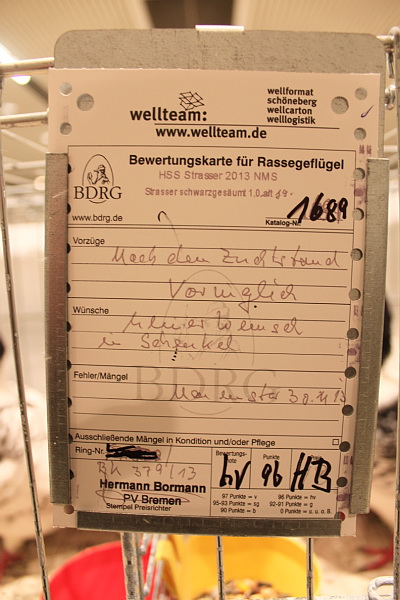 wellteam:
www.wellteam.de
wellformat
schöneberg
wellcarton
welllogistik
BDRG
www.bdrg.de
Bewertungskarte für Rassegeflügel
HSS Strasser 2013 NMS
Strasser schwarzgesäumt 1,0.alt
Katalog-Nr. 1689
Vorzüge
Nach dem Zuchtstand
Vorzüglich
Wünsche
Wunsch
in Schenkel
BDRG
Fehler/Mängel
30.11.13
Ausschließende Mängel in Kondition und/oder Pflege
Ring-Nr.
379/13
Bewertungs-
note
hv
Punkte
96
HB
Hermann Bormann
PV Bremen
Stempel Preisrichter
97 Punkte = v
96 Punkte = hv
95-93 Punkte = sg
92-91 Punkte = g
90 Punkte = b
0 Punkte = u. o. B.